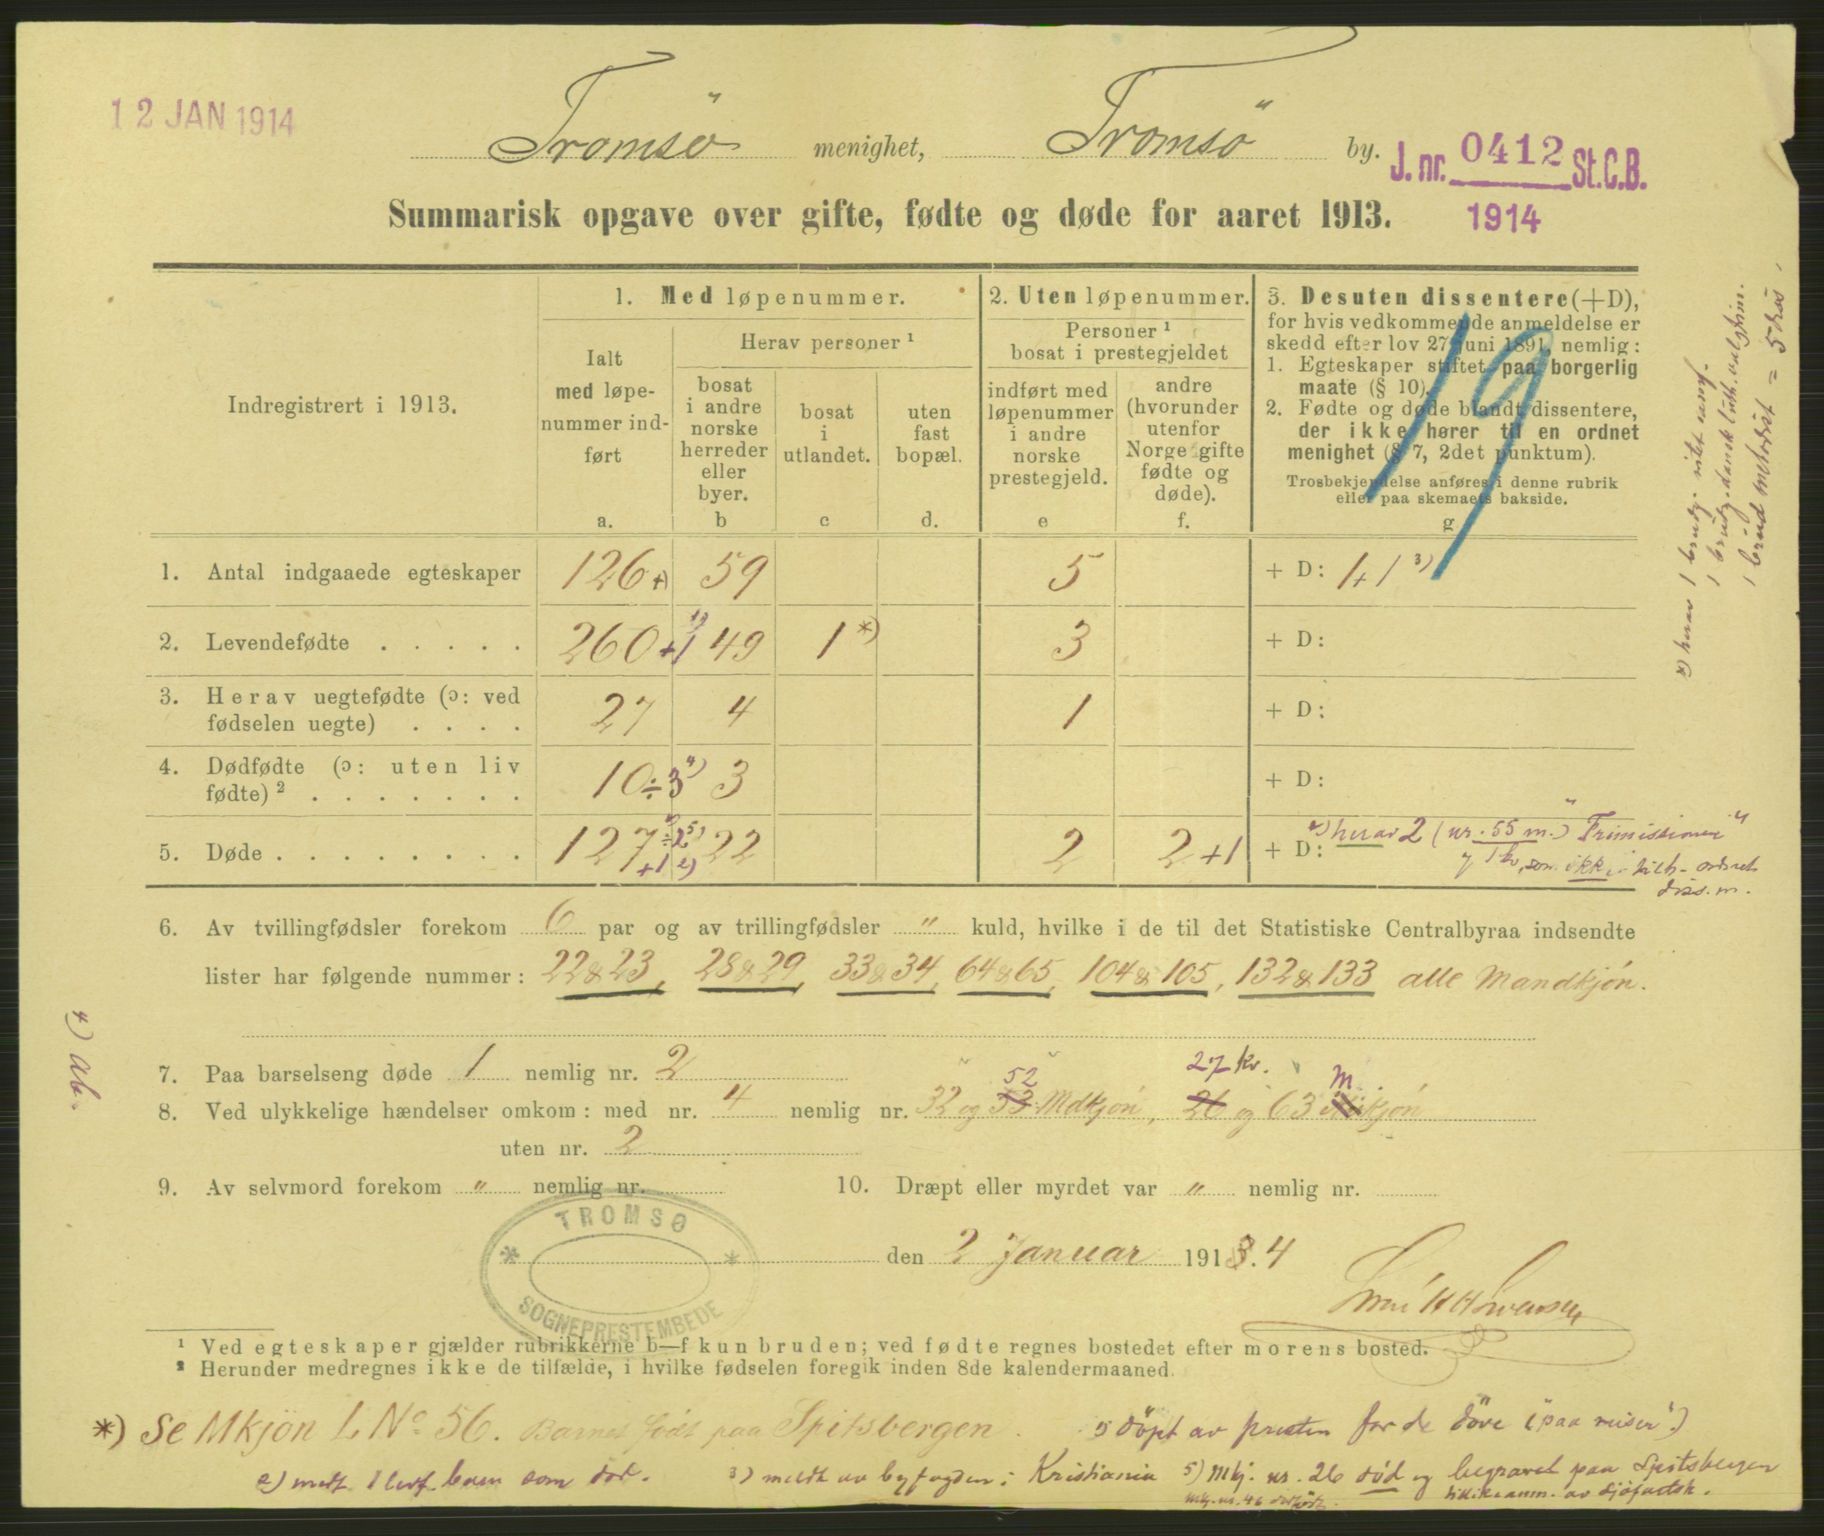 12 JAN 1914
Tromsö menighet, Tromsö by.
J. nr. 0412 St.C.B.
1914
Summarisk opgave over gifte, fødte og døde for aaret 1913.
19
Indregistrert i 1913.
1. Med løpenummer.
Ialt
med løpe-
nummer ind-
ført
a.
Herav personer ¹
bosat
i andre
norske
herreder
eller
byer.
b
bosat
i
utlandet.
c
uten
fast
bopæl.
d.
2. Uten løpenummer.
Personer ¹
bosat i prestegjeldet
indført med
løpenummer
i andre
norske
prestegjeld.
e
andre
(hvorunder
utenfor
Norge gifte
fødte og
døde).
f.
3. Desuten dissentere (+D),
for hvis vedkommende anmeldelse er
skedd efter lov 27 juni 1891, nemlig:
1. Egteskaper stiftet paa borgerlig
maate (§ 10).
2. Fødte og døde blandt dissentere,
der ikke hører til en ordnet
menighet (§ 7, 2det punktum).
Trosbekjendelse anføres i denne rubrik
eller paa skemaets bakside.
g
1. Antal indgaaede egteskaper 126 +) 59 5 + D: 1+1 ³)
2. Levendefødte . . . . . 260 +1 49 1 *) 3 + D:
3. Herav uegtefødte (ɔ: ved
fødselen uegte) . . . . 27 4 1 + D:
4. Dødfødte (ɔ: uten liv
fødte) ² . . . . . . . 10 ÷3 ⁴) 3 + D:
5. Døde . . . . . . . . . 127 ÷2 ⁵) +1 ²) 22 2 2+1 + D: herav 2 (nr. 55 m.) "Frimissionen"
1 kv, som ikke tilh. ordnet
diss. m.
6. Av tvillingfødsler forekom 6 par og av trillingfødsler " kuld, hvilke i de til det Statistiske Centralbyraa indsendte
lister har følgende nummer: 22 & 23, 28 & 29, 33 & 34, 64 & 65, 104 & 105, 132 & 133 alle Mandkjön.
7. Paa barselseng døde 1 nemlig nr. 2
27 kv.
8. Ved ulykkelige hændelser omkom: med nr. 4 nemlig nr. 32 og 53 52 Mdkjön, 26 og 63 M kjön
uten nr. 2
9. Av selvmord forekom " nemlig nr. 10. Dræpt eller myrdet var " nemlig nr.
TROMSØ
SOGNEPRESTEMBEDE
den 2 Januar 1913. 4
¹ Ved egteskaper gjælder rubrikkerne b—f kun bruden; ved fødte regnes bostedet efter morens bosted.
² Herunder medregnes ikke de tilfælde, i hvilke fødselen foregik inden 8de kalendermaaned.
*) Se Mkjön L No 56. Barnet født paa Spitsbergen.
døpt av presten for de døve ("paa reiser".)
2) medt. 1 levf. barn som død.
3) meldt av byfogden i Kristiania
5) Mkj. nr. 26 død og begravet paa Spitsbergen
mkj. nr. 46 dødfødt.
4) ab.
x) herav 1 brudg.
1 brudg. dansk luth. valgmen.
1 brud metodist = 5 diss.